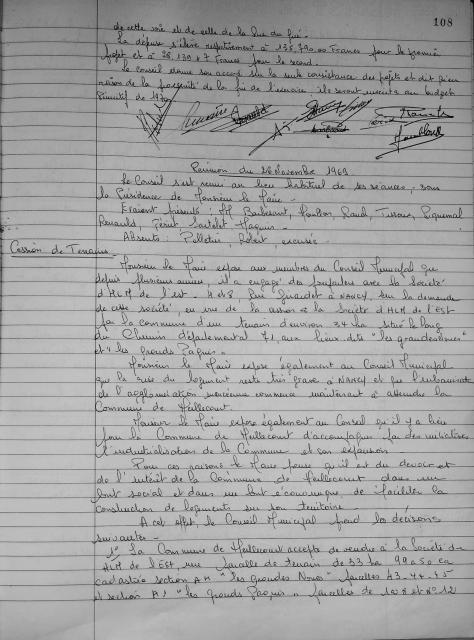 108
de cette voie et de celle de la Rue du Gué.
La dépense s'élève respectivement à 135.790.00 Francs pour le premier
projet et à 28.139.47 Francs pour le second.
Le Conseil donne son accord sur la consistance des projets et dit qu'en
raison de la proximité de la fin de l'exercice, ils seront inscrits au budget
Primitif de 1970
Réunion du 28 Novembre 1969
Le Conseil s'est réuni au lieu habituel de ses séances, sous
la Présidence de Monsieur le Maire.
Etaient présents : MM Houllon, Piquemal
Renauld,
Absents : Pelletier, Robert, excusés
Cession de Terrains
Monsieur le Maire expose aux membres du Conseil Municipal que
depuis plusieurs années, il a engagé des pourparlers avec la Société
d'HLM de l'Est, à NANCY, sur la demande
de cette société, en vue de la cession à la Société d'HLM de l'Est
par la commune d'un terrain d'environ 34 ha situé le long
du Chemin départemental 71, aux lieux-dits "les grandes noues"
et "les grands Pâquis"
Monsieur le Maire expose également au Conseil Municipal
que la crise du logement reste très grave à NANCY et que l'urbanisation
de l'agglomération nancéienne commence maintenant à atteindre la
Commune de Heillecourt.
Monsieur le Maire expose également au Conseil qu'il y a lieu
pour la Commune de Heillecourt d'accompagner par des initiatives
l'industrialisation de la Commune et son expansion.
Pour ces raisons le Maire pense qu'il est du devoir et
de l'intérêt de la Commune de Heillecourt dans un
but social et dans un but économique, de faciliter la
construction de logements sur son territoire.
A cet effet, le Conseil Municipal prend les décisions
suivantes -
1° La Commune de Heillecourt accepte de vendre à la Société d'
HLM de l'Est, une parcelle de terrain de 33 ha 99 a 50 ca
cadastrée section AH "les Grandes Noues" parcelles 43-44-45
et section AI "les Grands Pâquis" parcelles de 1 à 8 et n° 12